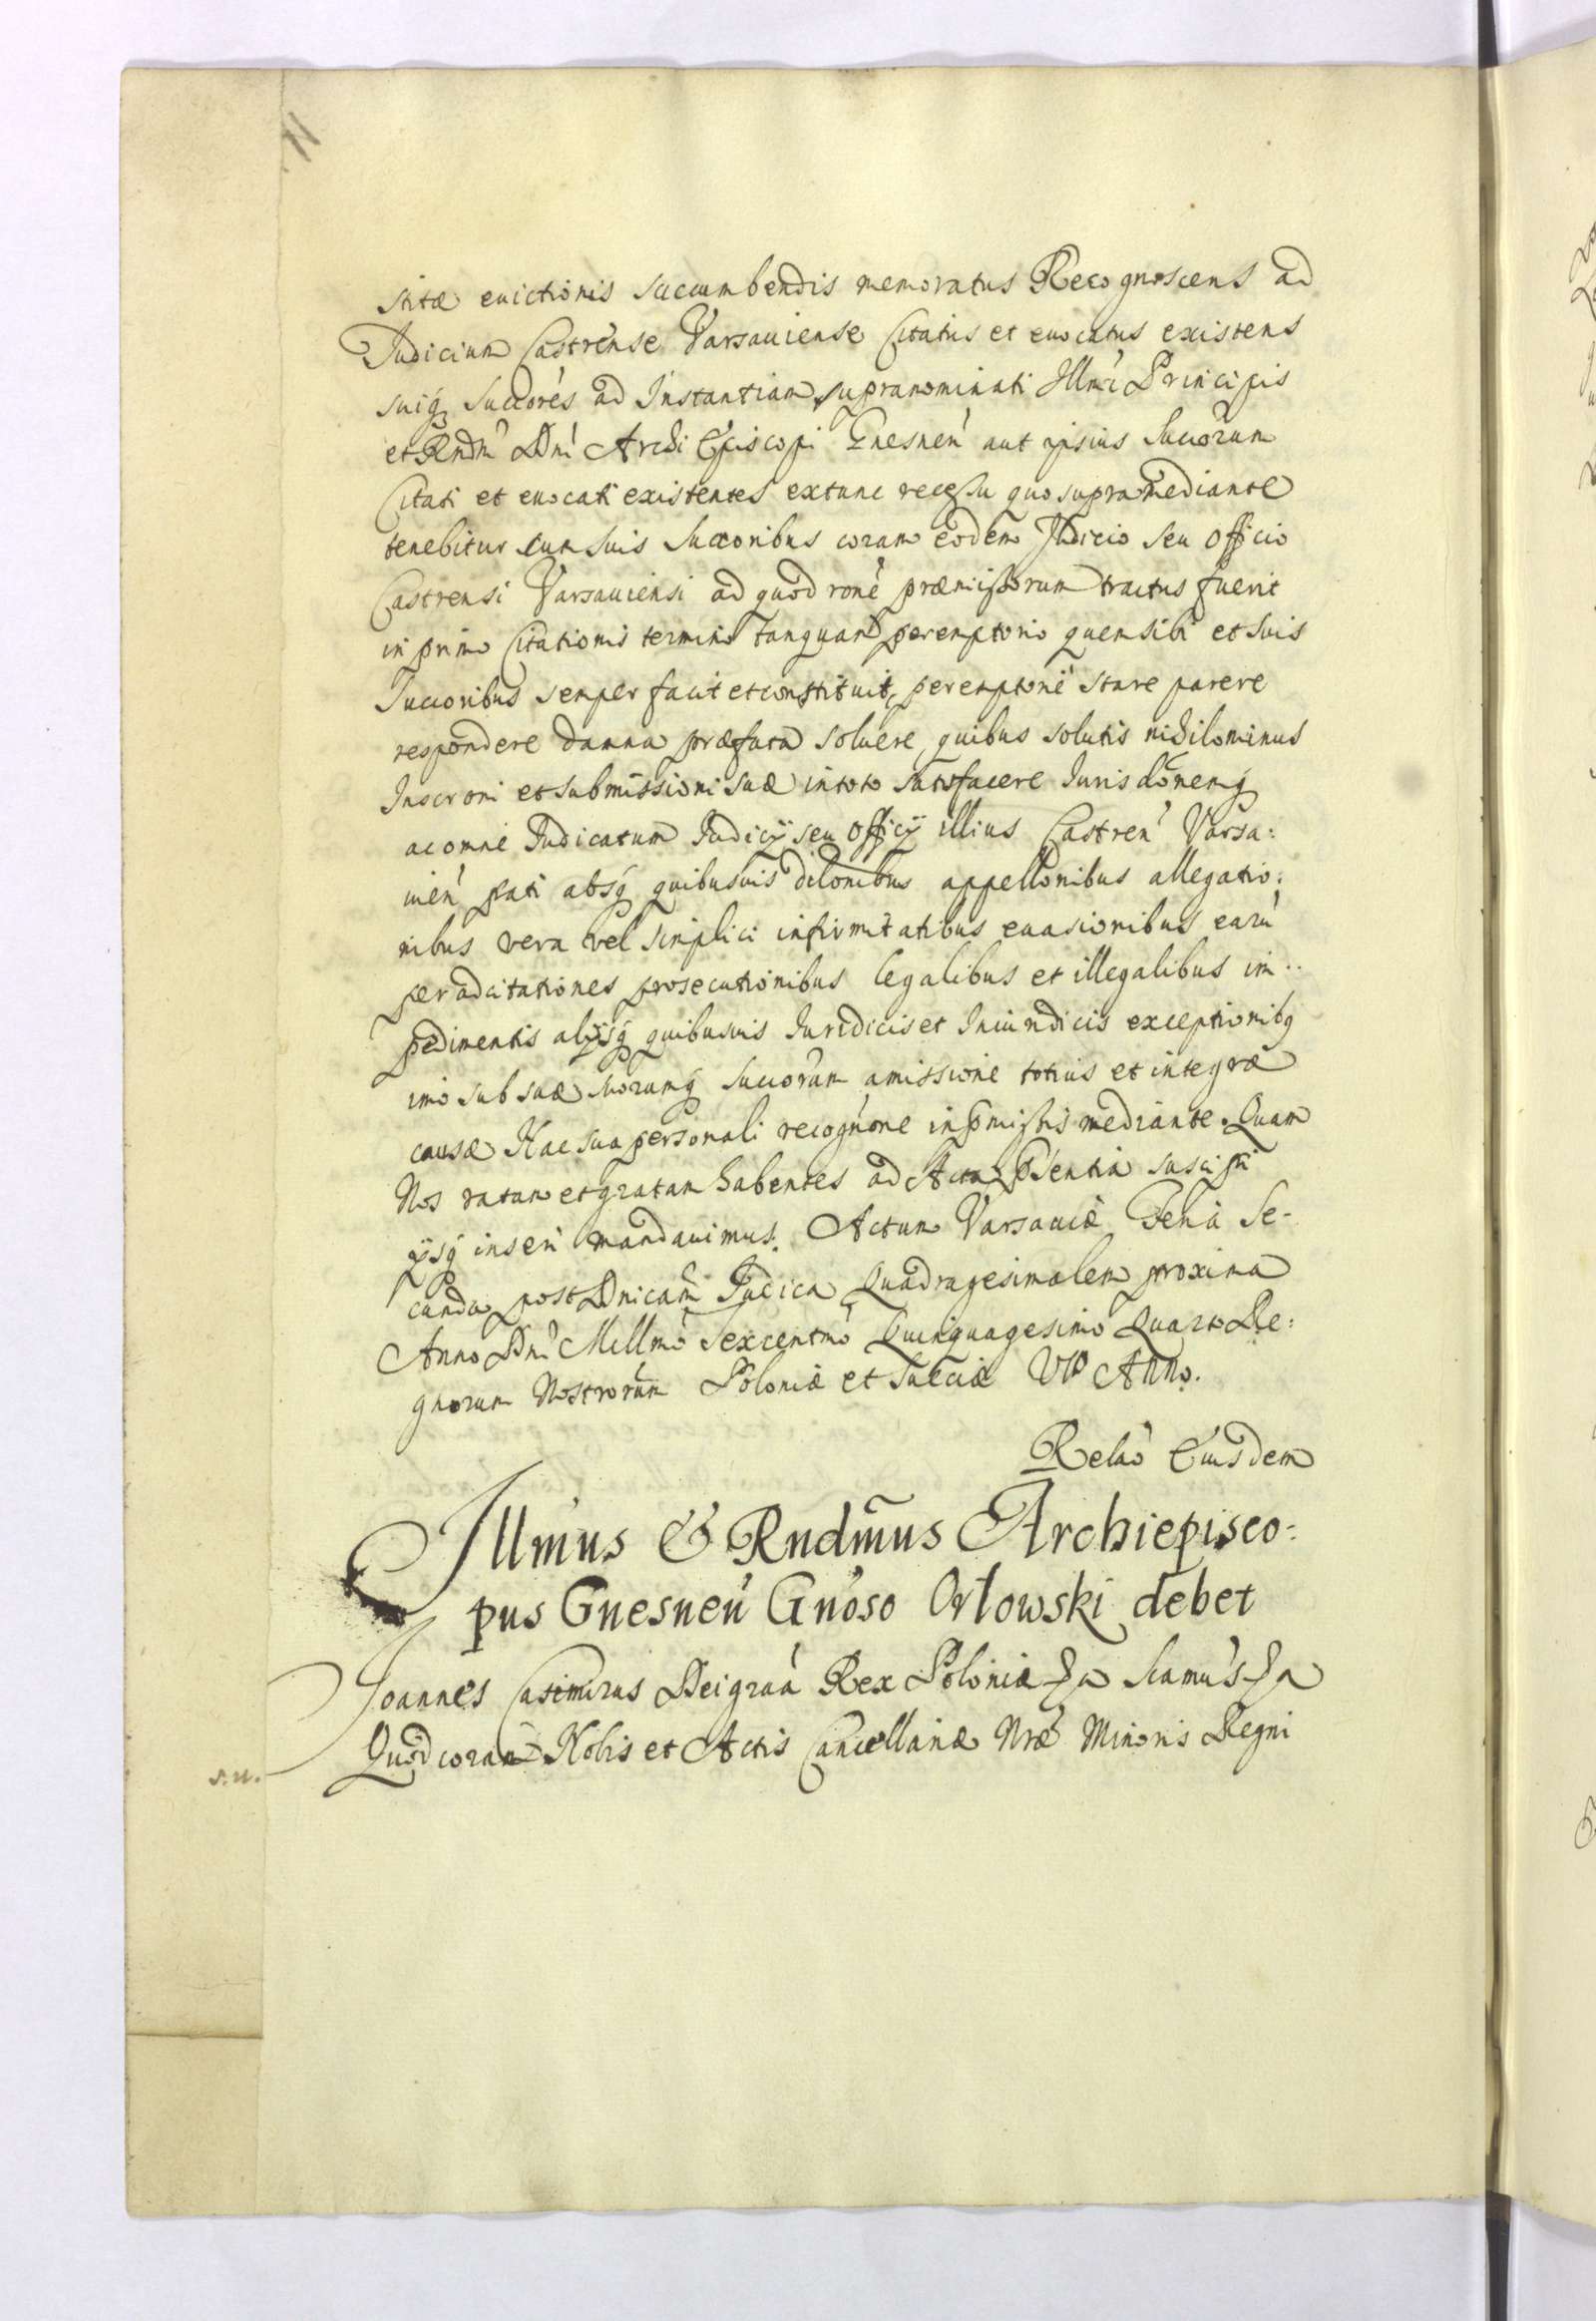 11
stitæ euictionis succumbendis memoratus Recognoscens ad
Iudicium Castrense Varsauiense Citatus et euocatus existens
suiq3 Succores ad Instantiam supranominati Illmi Principis
et Rndm̃ Dni Archi Episcopi Gnesnen aut ipsius Succorum
Citati et euocati existentes extunc recessu quo supra mediante
tenebitur cum suis Succoribus coram eodem Iudicio seu Officio
Castrensi Varsauiensi ad quod rone præmissorum tractus fuerit
in primo Citationis termino tanquam peremptorio quem sibi et suis
Succoribus semper facit et constituit, peremptorie stare parere
respondere damna præfata soluere, quibus solutis nihilominus
Inscroni et submissioni suæ in toto satisfacere Iurisdonemq3
ac omne Iudicatum Iudicÿ seu Officÿ illius Castren Varsa:
uien pati absq3 quibusuis dilonibus appellonibus allegatio:
nibus vera vel simplici infirmitatibus euasionibus earu
per adcitationes prosecutionibus legalibus et illegalibus im..
pedimentis alÿsq3 quibusuis Iuridicis et Iniuridicis exceptionibq3
imo sub suæ suorumq3 Succorum amissione totius et integræ
causæ Hac sua personali recognone in pmissis mediante. Quam
Nos ratam et gratam habentes ad Acta pntia suscipi
ÿsq3 inseri mandauimus. Actum Varsauiæ Feria Se-
cunda post Dnicam Iudica Quadragesimalem proxima
Anno Dni Millmo Sexcentmo Quinquagesimo Quarto Re:
gnorum Nostrorum Poloniæ et Sueciæ VIo Anno.
Relao Eiusdem
Illmus & Rndm̃us Archiepisco:
pus Gnesnen Gnoso Orlowski debet
Joannes Casimirus Dei graa Rex Poloniæ &a Siamus &a
Quod coram Nobis et Actis Cancellariæ Nræ Minoris Regni
s.u.